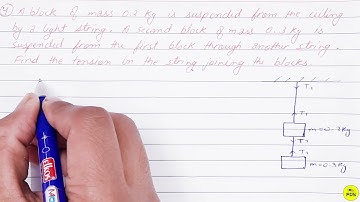 4) A block of mass 0.2 Kg is suspended from the ceiling
by a light string. A second block of mass 0.3 Kg is
suspended from the first block through another string.
Find the tension in the string joining the blocks.
T1
T1
m=0.2Kg
T2
T2
m=0.3Kg